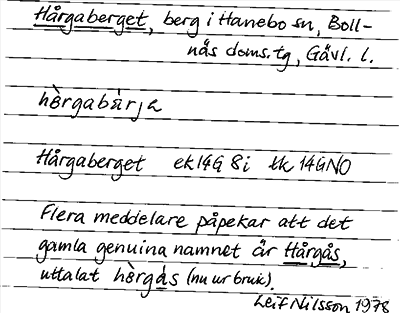 Hårgaberget, berg i Hanebo sn, Boll-
näs doms.tg, Gävl. l.
hòrgabàrja
Hårgaberget ek14G 8i tk 14GNO
Flera meddelare påpekar att det
gamla genuina namnet är Hårgås,
uttalat hòrgás (nu ur bruk).
Leif Nilsson 1978